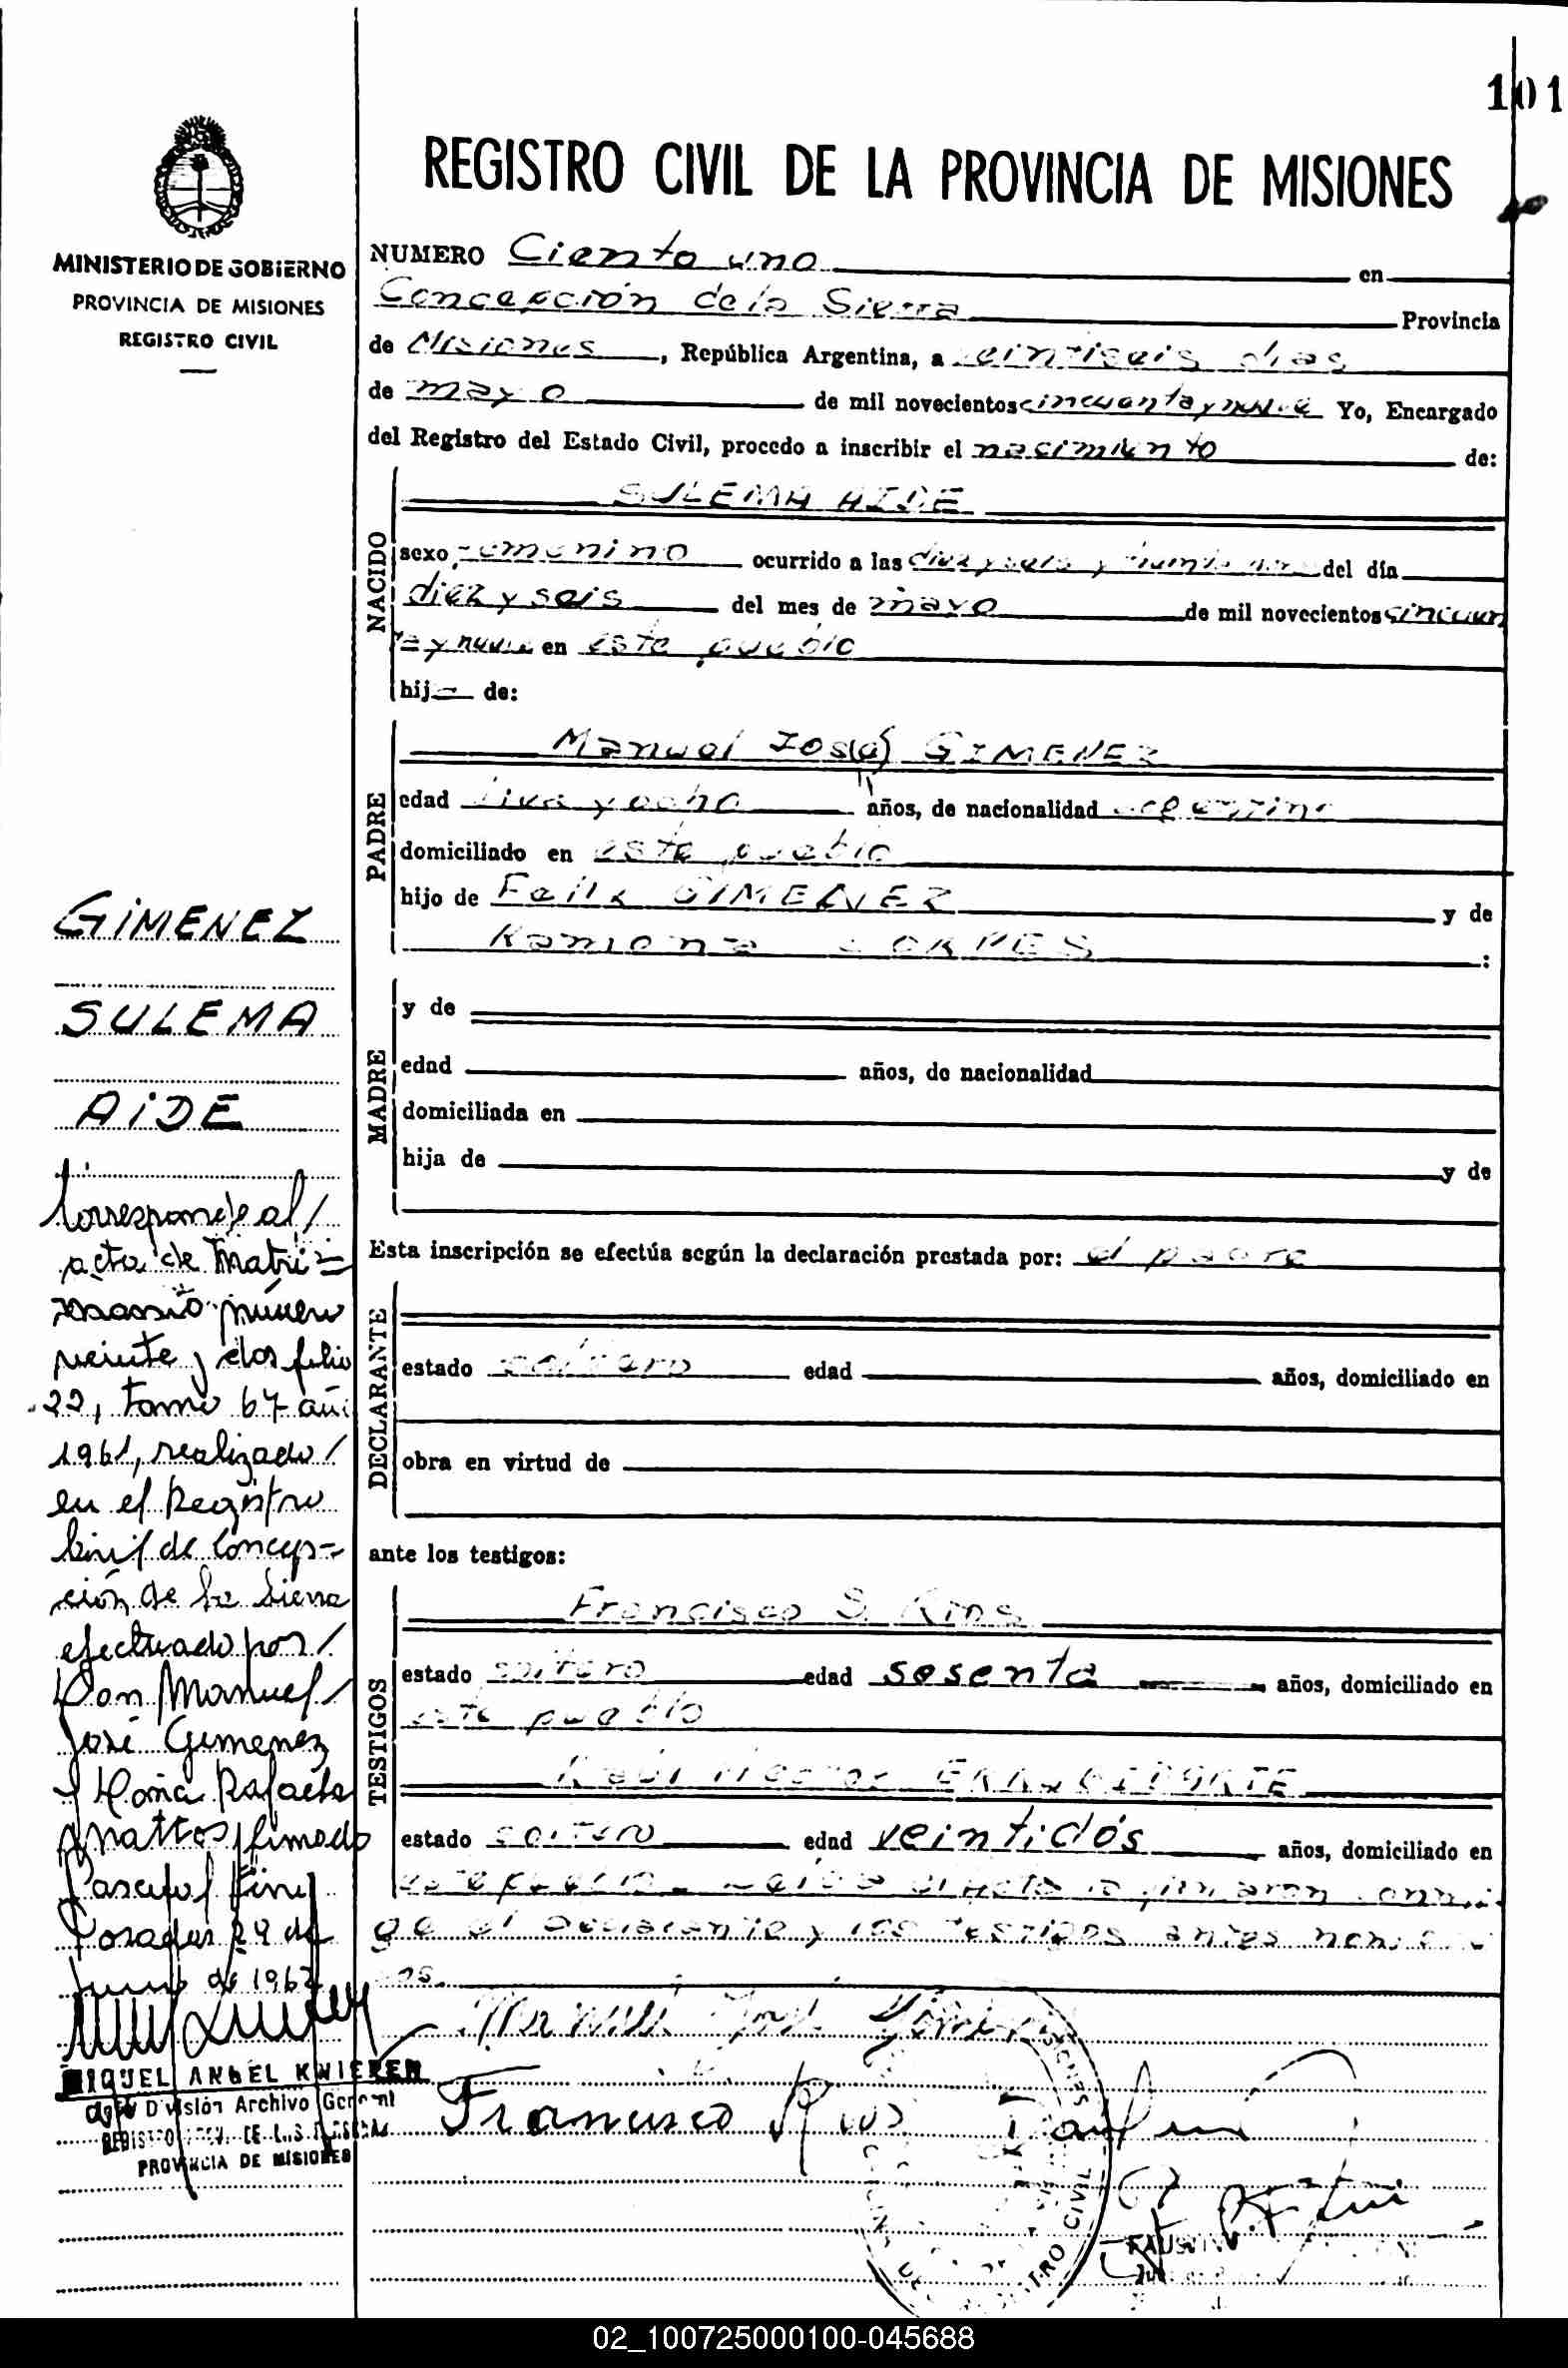 101
REGISTRO CIVIL DE LA PROVINCIA DE MISIONES
MINISTERIO DE GOBIERNO
PROVINCIA DE MISIONES
REGISTRO CIVIL
NUMERO Ciento uno en
Concepción de la Sierra Provincia
de Misiones, República Argentina, a veintiseis dias
de mayo de mil novecientos cincuenta y nueve Yo, Encargado
del Registro del Estado Civil, procedo a inscribir el nacimiento de:
NACIDO
SULEMA AIDE
sexo femenino ocurrido a las diez y seis y del día
diez y seis del mes de mayo de mil novecientos cincuen
ta y nueve en este pueblo
hij de:
PADRE
Manuel José GIMENEZ
edad años, de nacionalidad argentino
domiciliado en este pueblo
hijo de Felix GIMENEZ y de
Ramona :
MADRE
y de
edad años, de nacionalidad
domiciliada en
hija de y de
Esta inscripción se efectúa según la declaración prestada por: el padre
DECLARANTE
estado soltero edad años, domiciliado en
obra en virtud de
ante los testigos:
TESTIGOS
Francisco S. Rios
estado soltero edad sesenta años, domiciliado en
este pueblo
estado soltero edad veintidós años, domiciliado en
este pueblo. Leida el Acta la firmaron conmi
go el declarante y los testigos antes nom
os.
Manuel José Giménez
Francisco Rios
GIMENEZ
SULEMA
AIDE
Corresponde al
acta de Matri=
monio número
veinte y dos folio
22, tomo 67 año
1961, realizado
en el Registro
Civil de Concep=
ción de la Sierra
efectuado por
Don Manuel
José Gimenez
y Doña Rafaela
Mattos, firmado
Pascual
Posadas 29 de
junio de 1962
MIGUEL ANGEL
División Archivo General
PROVINCIA DE MISIONES
02_100725000100-045688